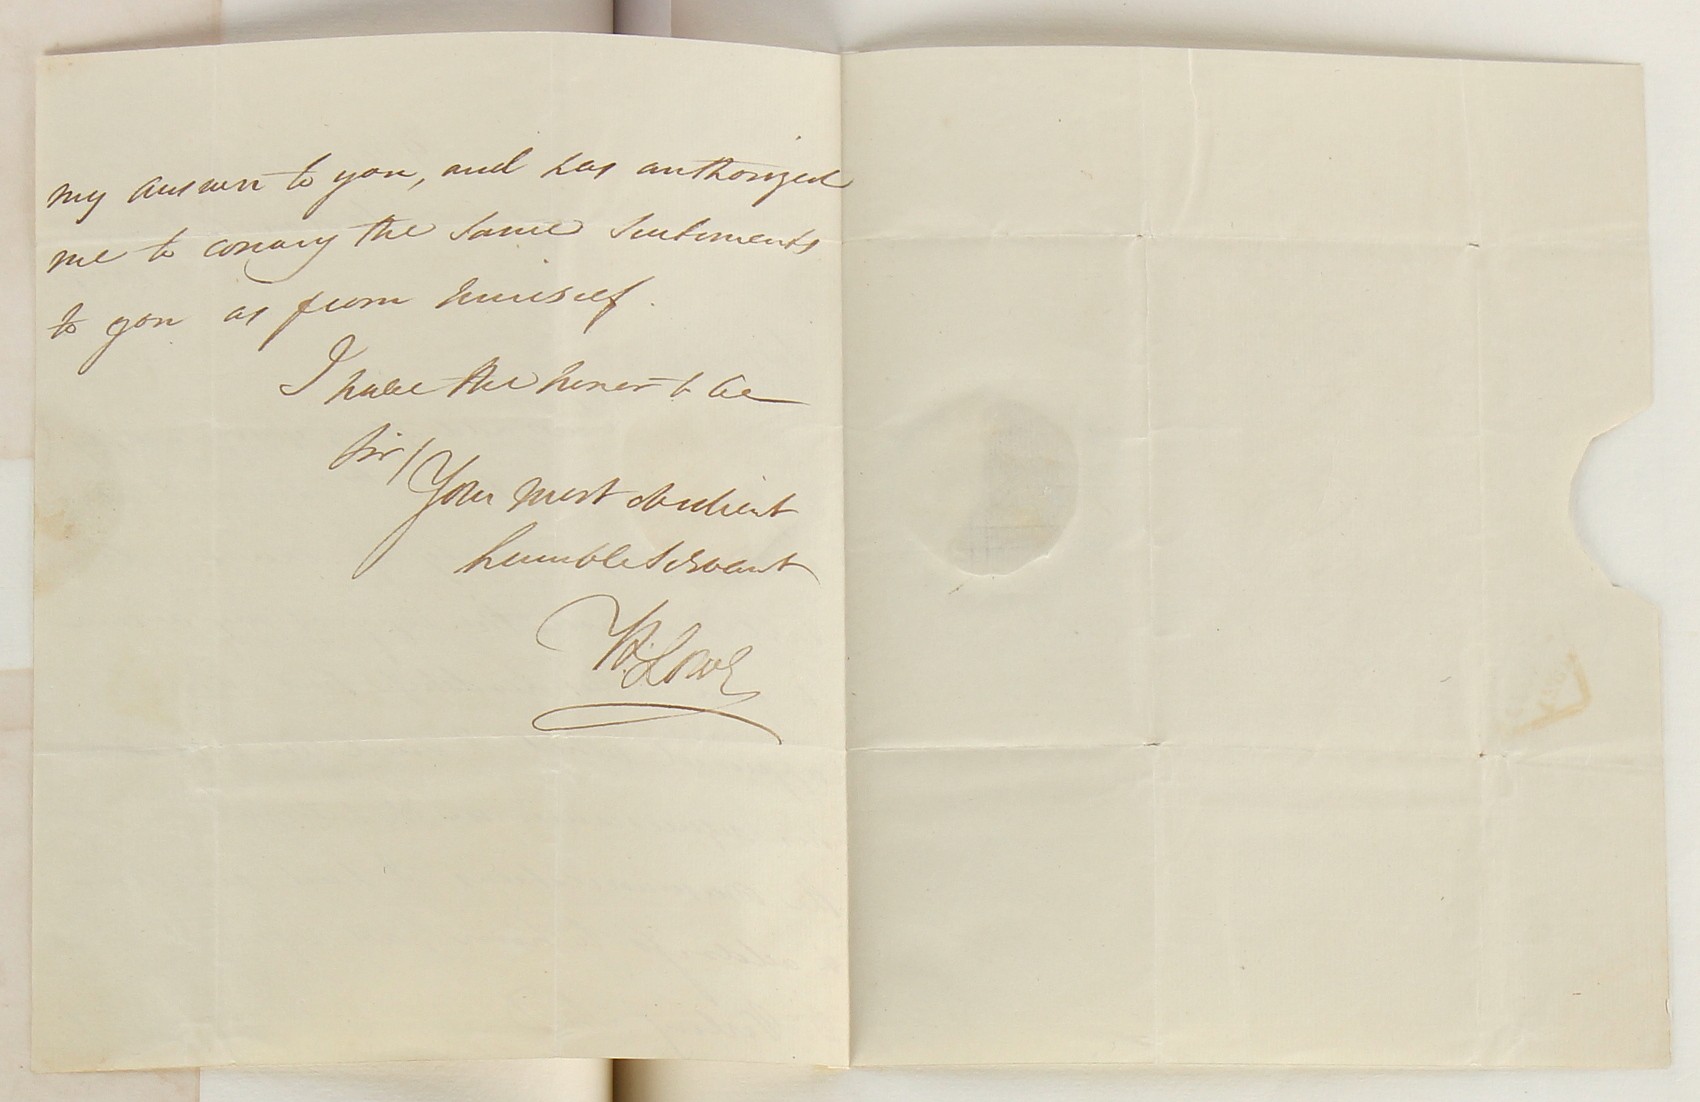 my answer to you, and has authorized
me to convey the same sentiments
to you as from himself.
I have the honor to be
Sir/
Your most obedient
humble servant
H. Lowe